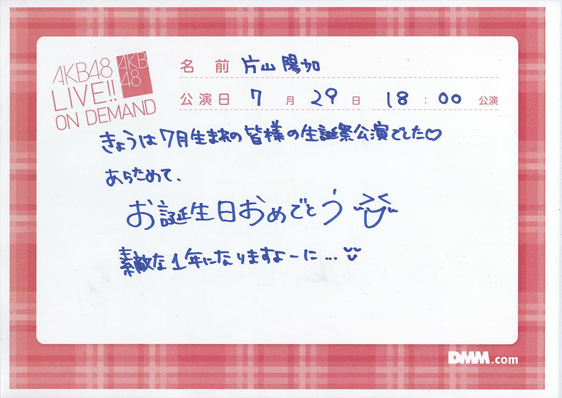 AKB48
LIVE!!
ON DEMAND
AKB
48
名 前 片山 陽加
公演日 7 月 29 日 18 : 00 公演
きょうは7月生まれの皆様の生誕祭公演でした♡
あらためて、
お誕生日おめでとう
素敵な1年になりますよーに…
DMM.com